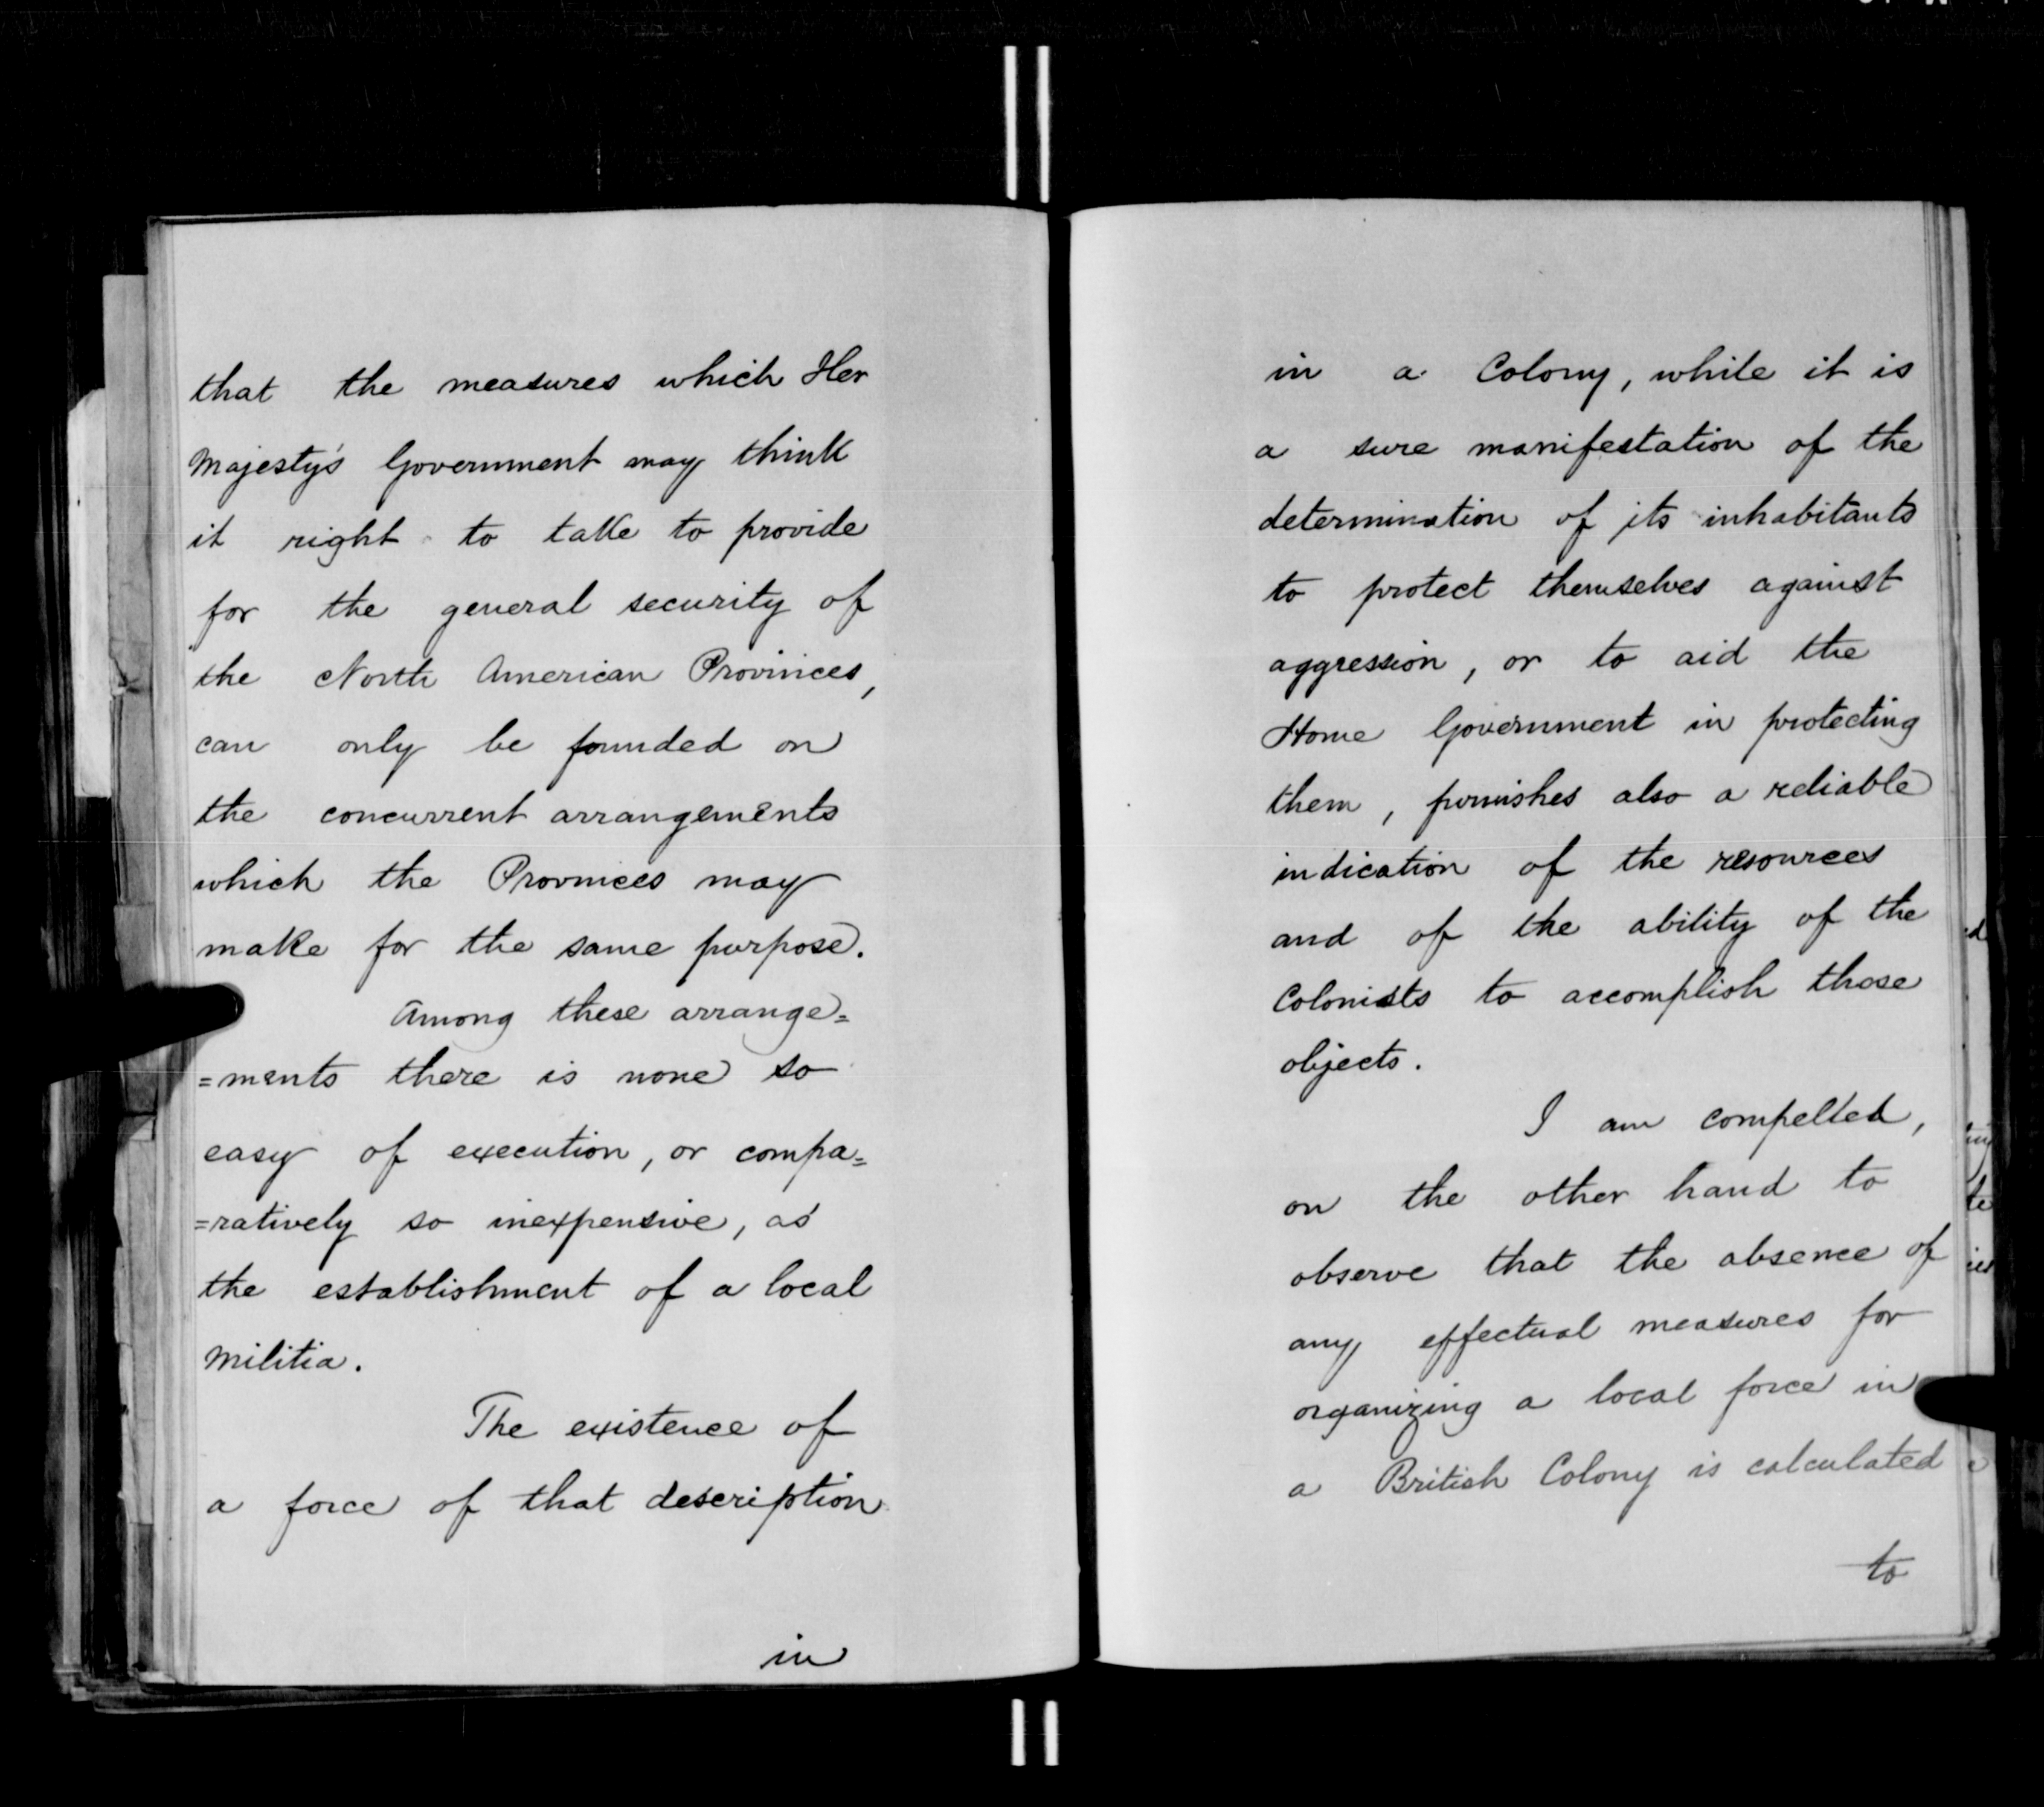 that the measures which Her
Majesty's Government may think
it right to take to provide
for the general security of
the North American Provinces,
can only be founded on
the concurrent arrangements
which the Provinces may
make for the same purpose.
Among these arrange=
=ments there is none so
easy of execution, or compa=
=ratively so inexpensive, as
the establishment of a local
Militia.
The existence of
a force of that description
in
in a Colony, while it is
a sure manifestation of the
determination of its inhabitants
to protect themselves against
aggression, or to aid the
Home Government in protecting
them, furnishes also a reliable
indication of the resources
and of the ability of the
Colonists to accomplish those
objects.
I am compelled,
on the other hand to
observe that the absence of
any effectual measures for
organizing a local force in
a British Colony is calculated
to